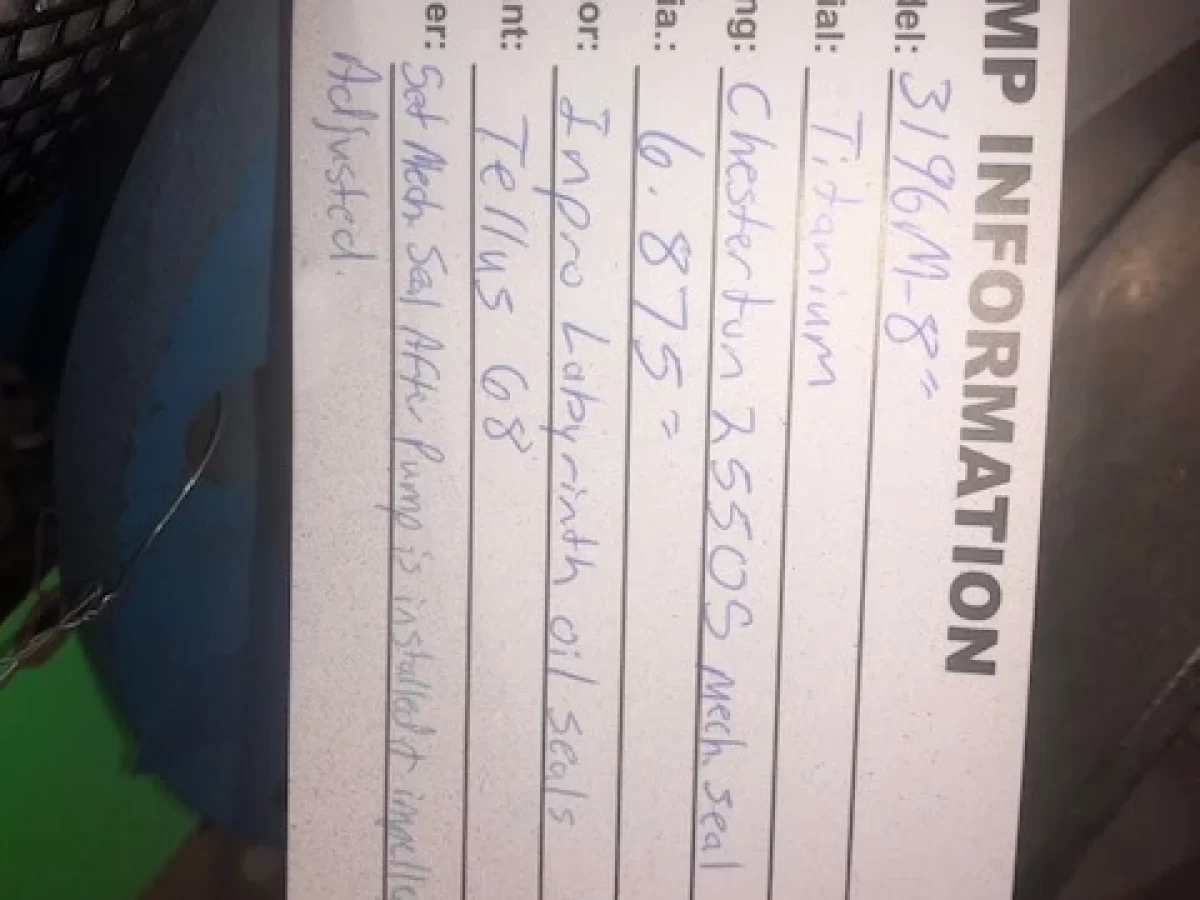 MP INFORMATION
del: 3196M-8"
ial: Titanium
ng: Chesterton 2550S Mech. seal
ia.: 6.875"
or: Inpro Labyrinth oil seals
nt: Tellus 68
er: Set Mech. Seal After Pump is installed & impelle
Adjusted.